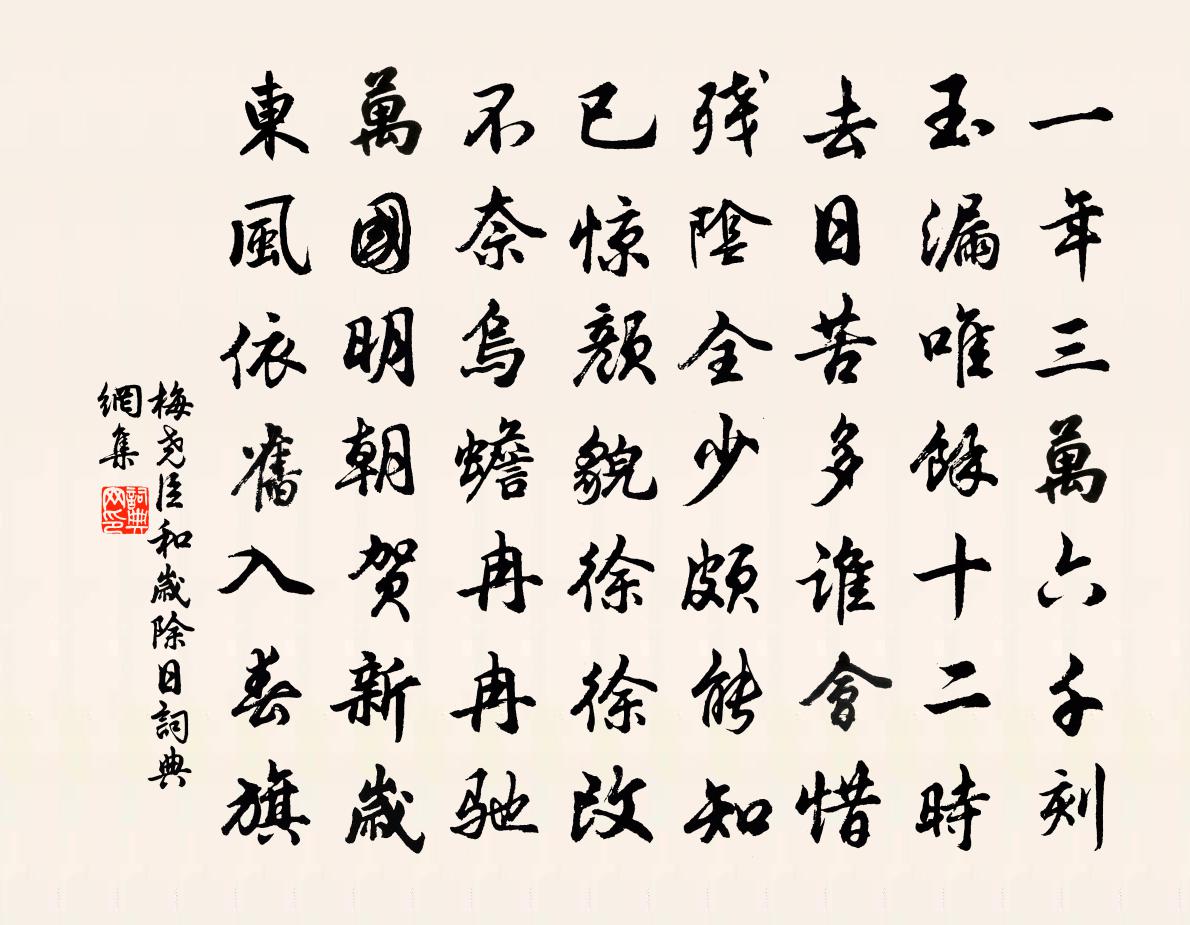 一年三萬六千刻
玉漏唯餘十二時
去日苦多誰會惜
残陰全少頗能知
已惊顏貌徐徐改
不奈烏蟾冉冉馳
萬國明朝賀新歲
東風依舊入春旗
梅尧臣和歲除日詞典
網集
詞典
网印